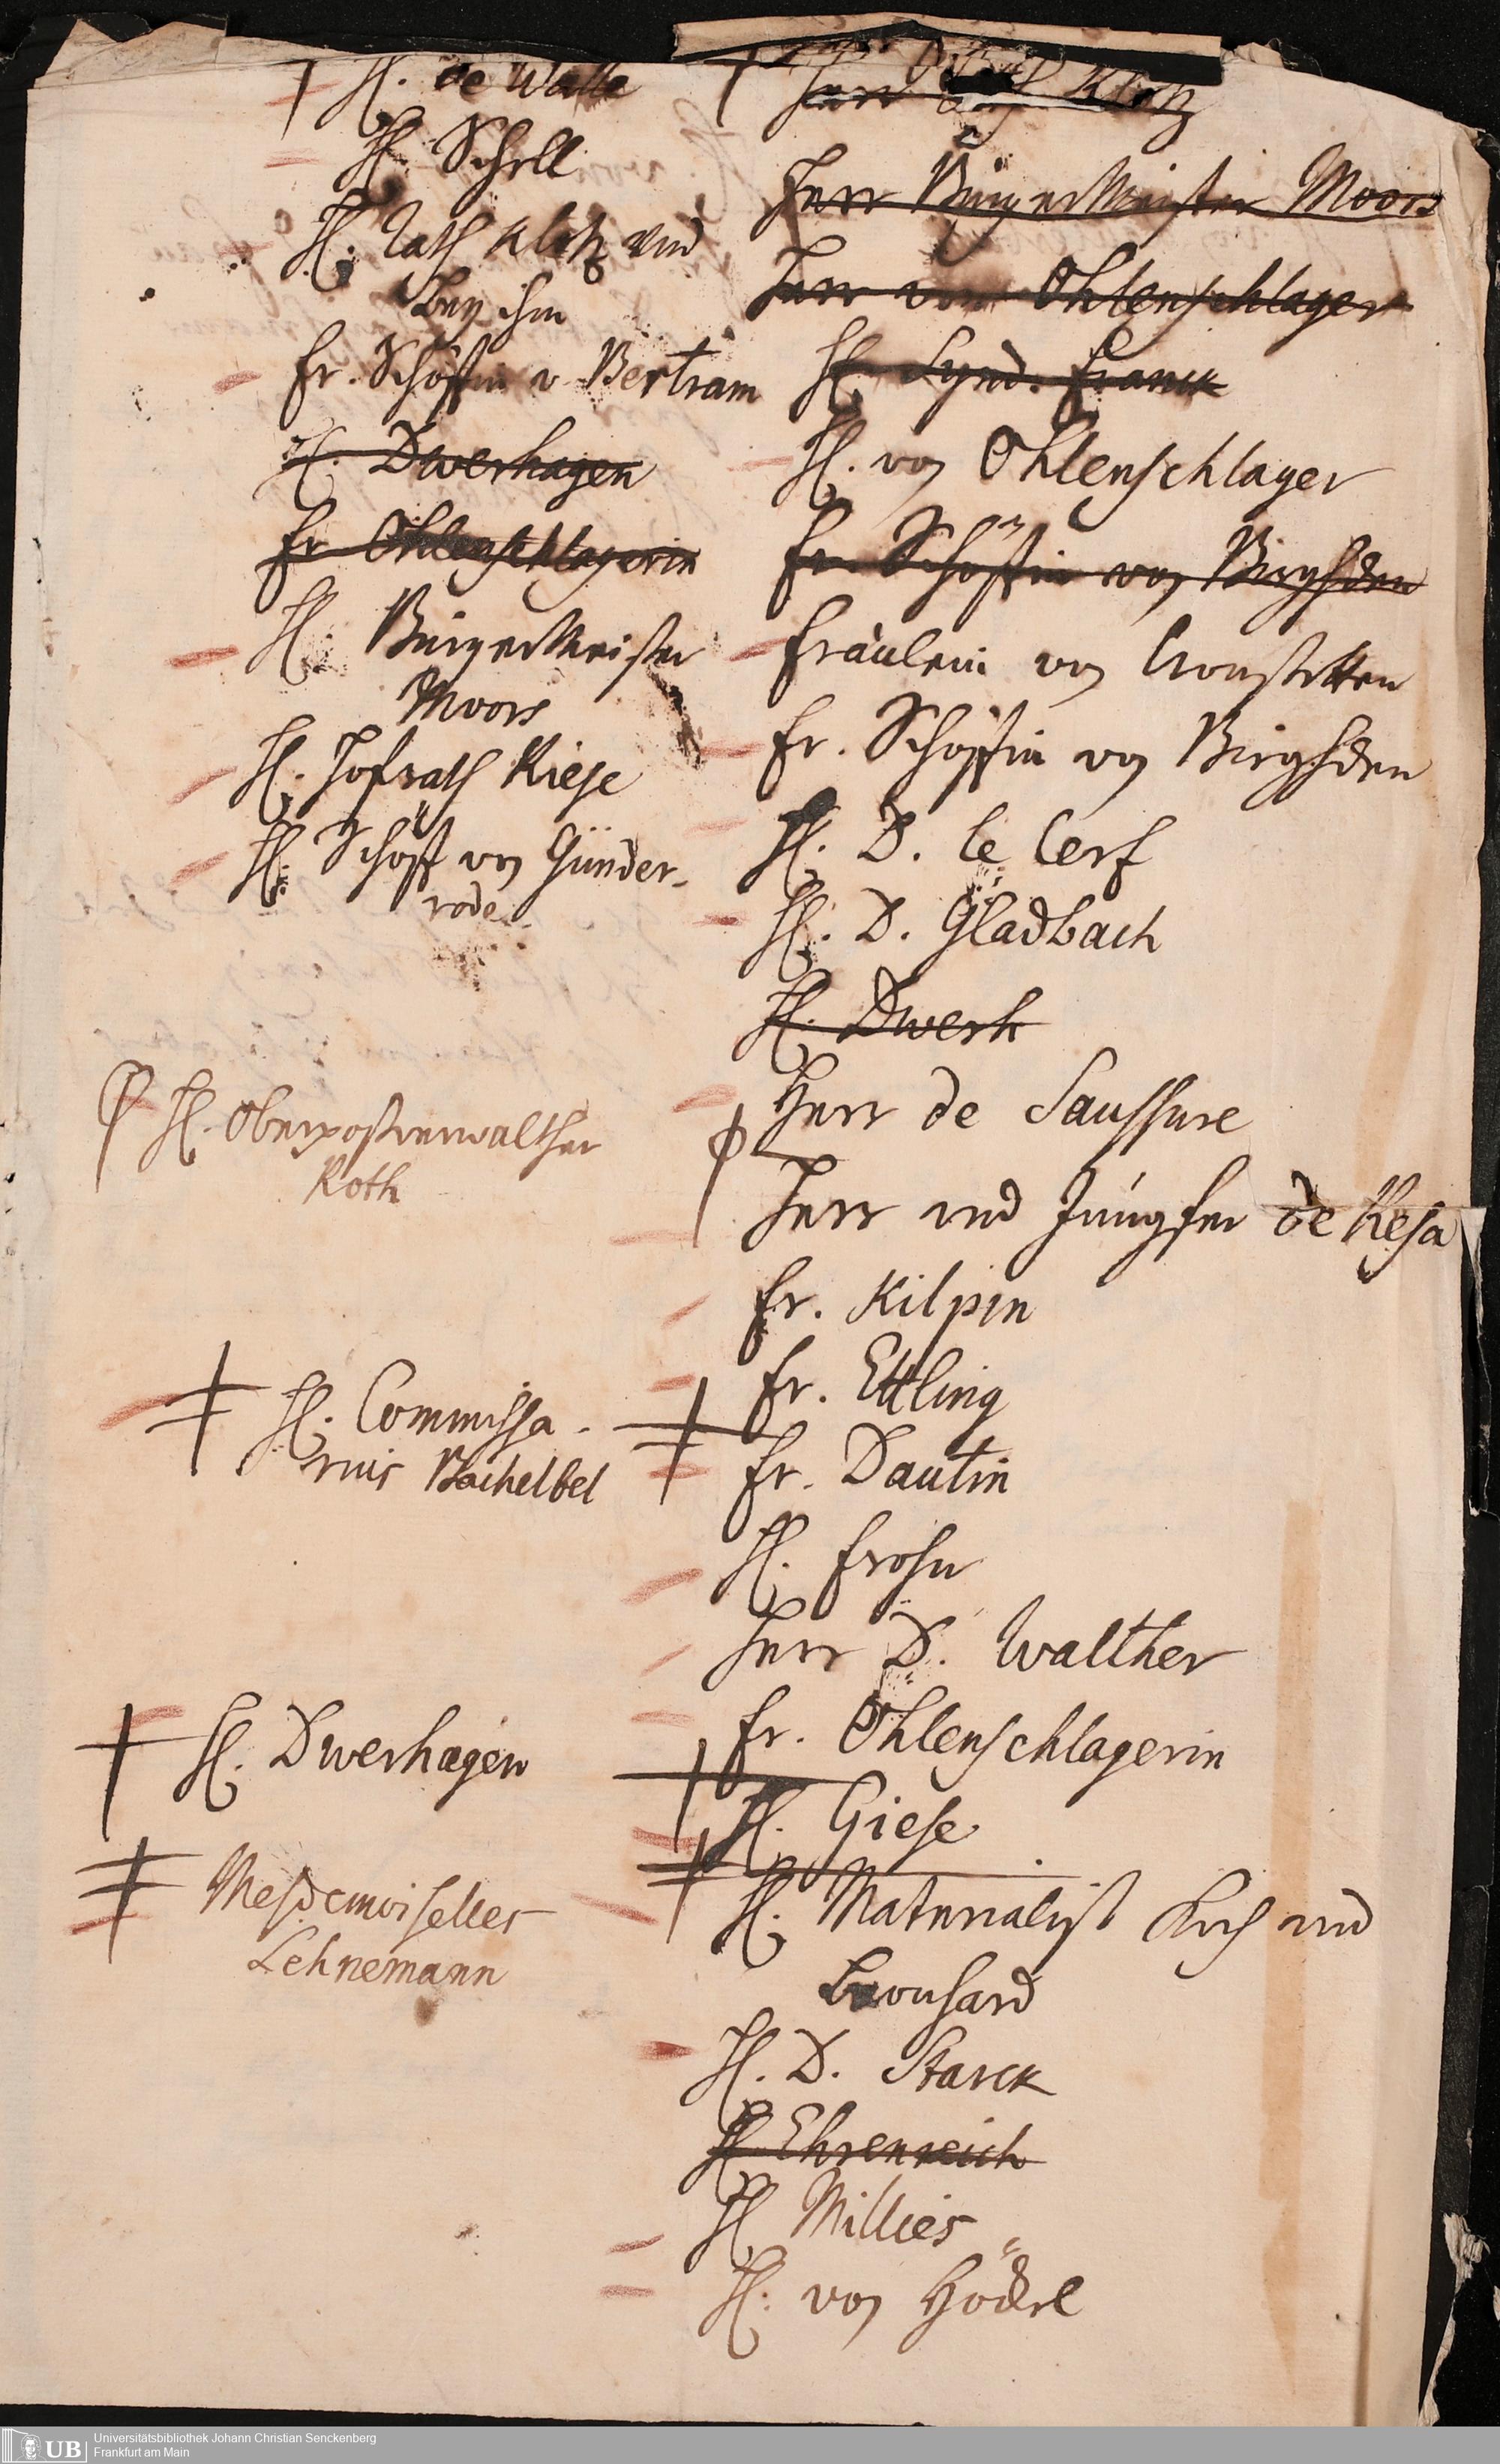 H. de Walle
H. Schell
H. Rath Klotz und
Bey ihm
Fr. Schöffin v. Bertram
H. Dwerhagen
Fr. Ohlenschlagerin
H. BurgerMeister
Moors
H. Hofrath Riese
H. Schöff von Günder-
rode
H. Oberpostverwalther
Roth
H. Commissa-
rius Bachelbel
H. Dwerhagen
Mesdemoiselles
Lehnemann
Herr Klotz
Herr BurgerMeister Moors
Herr von Ohlenschlager
H. Synd. Franck
H. von Ohlenschlager
Fr. Schöffin von Birghden
Fräulein von Cronstetten
Fr. Schöffin von Birghden
H. D. le Cerf
H. D. Gladbach
H. Dwerh
Herr de Saussure
Herr und Jungfer de Resa
Fr. Kilpin
Fr. Ettling
Fr. Dautin
H. Frohn
Herr D. Walther
Fr. Ohlenschlagerin
H. Giese
H. Materialist Koch und
Leonhard
H. D. Starck
H Ehrenreich
H Millies
H. von Höckel
Universitätsbibliothek Johann Christian Senckenberg
Frankfurt am Main
UB